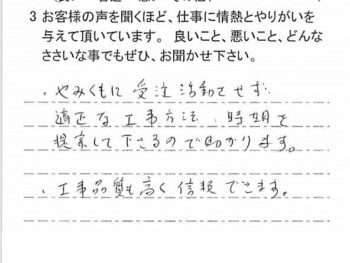 3 お客様の声を聞くほど、仕事に情熱とやりがいを
与えて頂いています。 良いこと、悪いこと、どんな
ささいな事でもぜひ、お聞かせ下さい。
・やみくもに受注活動させず
適正な工事方法、時期を
提案して下さるので助かります。
・工事品質も高く信頼できます。